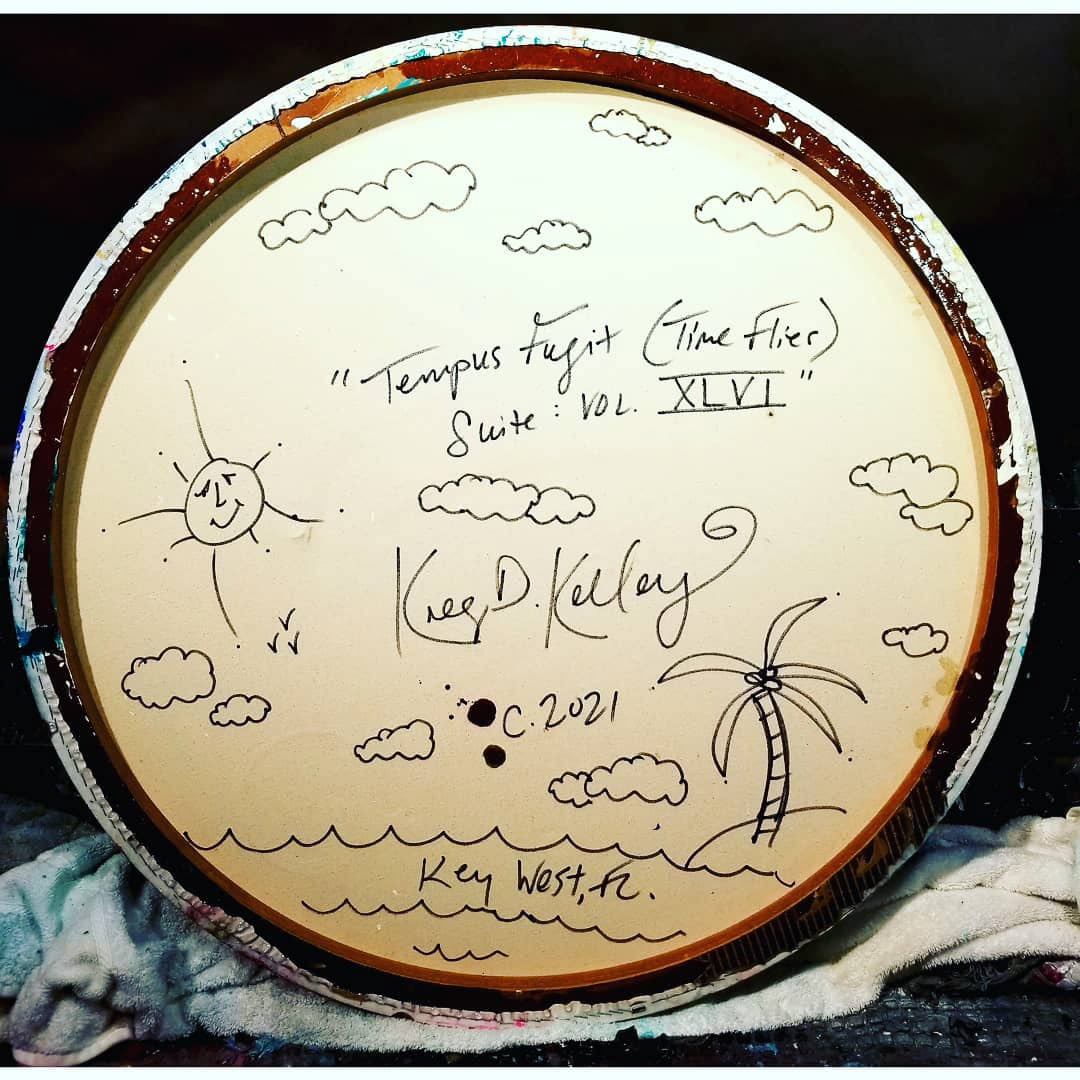 "Tempus Fugit (Time Flies)
Suite: VOL. XLVI"
Kreg D. Kelley
c. 2021
Key West, FL.